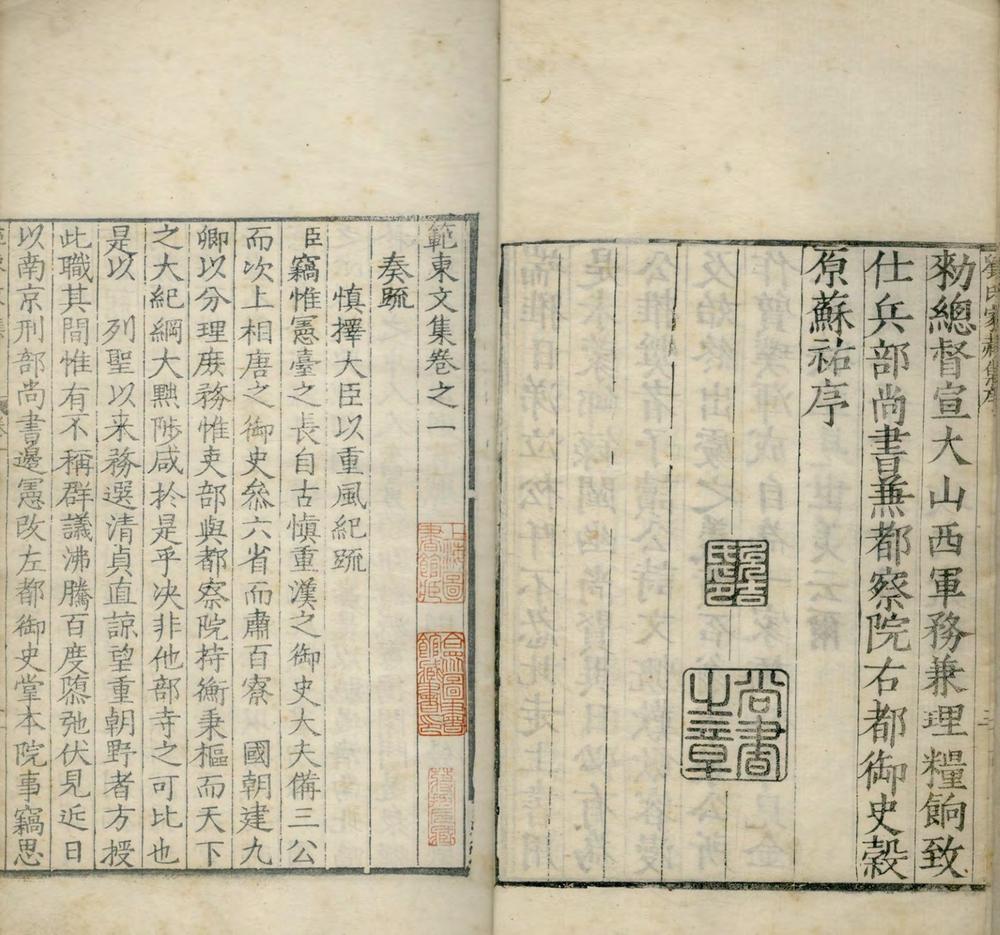 勑總督宣大山西軍務兼理糧餉致
仕兵部尚書兼都察院右都御史榖
原蘇祐序
尚書之章
範東文集卷之一
奏疏
慎擇大臣以重風紀疏
臣竊惟憲臺之長自古慎重漢之御史大夫備三公
而次上相唐之御史叅六省而肅百寮　國朝建九
卿以分理庶務惟吏部與都察院持衡秉樞而天下
之大紀綱大黜陟咸於是乎决非他部寺之可比也
是以　列聖以来務選清貞直諒望重朝野者方授
此職其間惟有不稱群議沸騰百度隳弛伏見近日
以南京刑部尚書邊憲改左都御史掌本院事竊思